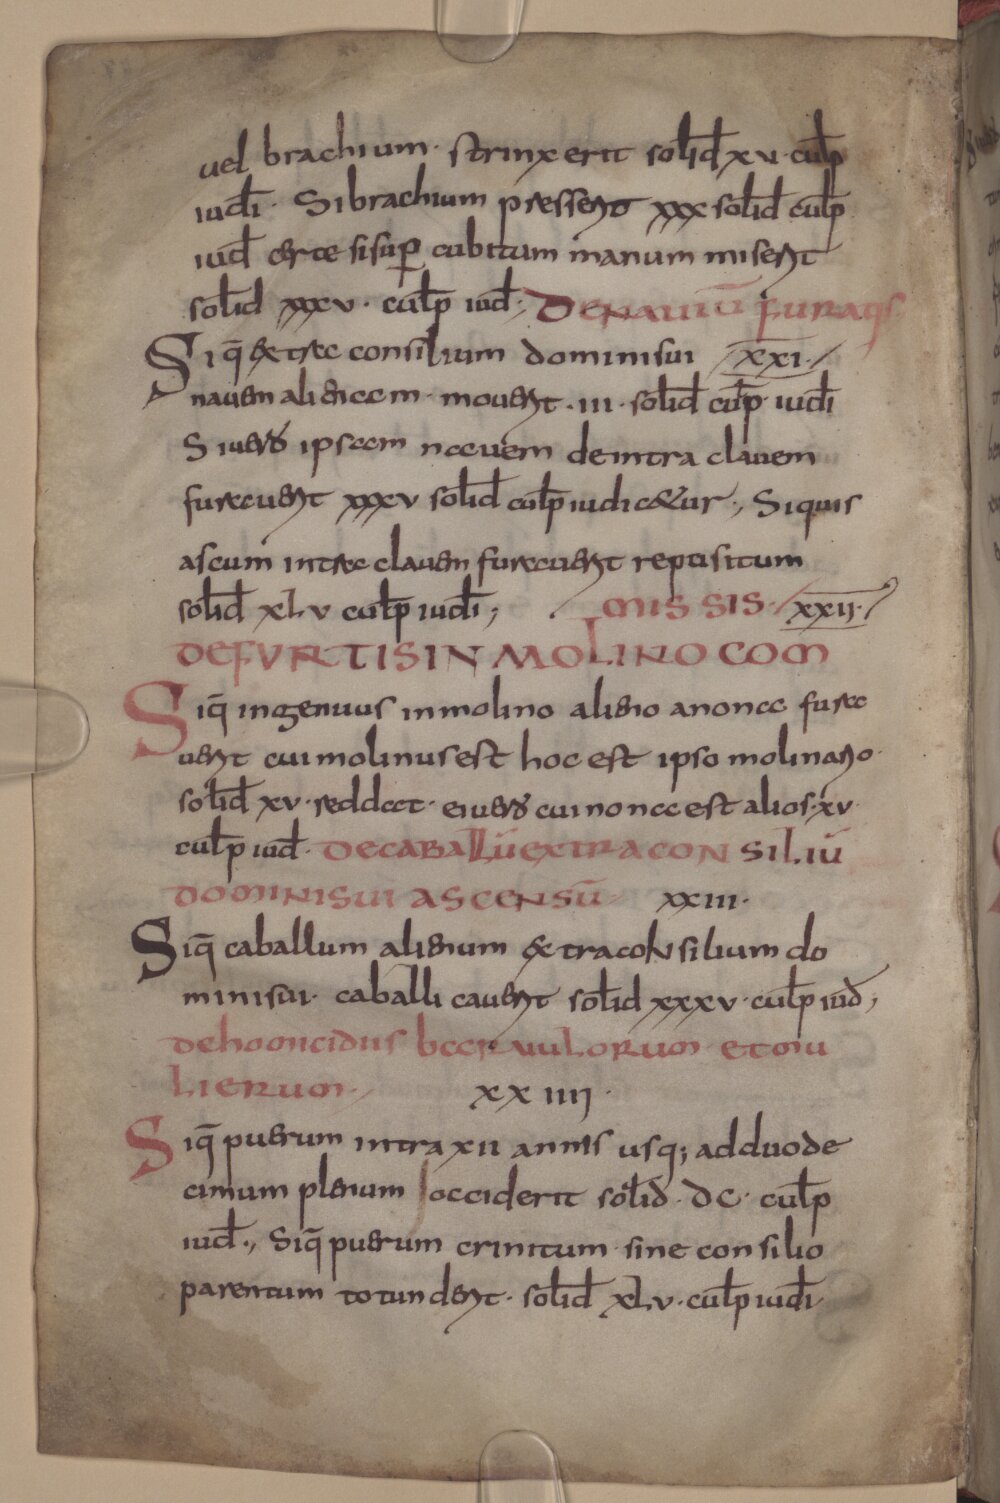 uel brachium· strinxerit solid xv· culp
iudi· Si brachium presserit xxx solid culp
iud certe si sup cubitum manum miserit
solid xxxv· culp iud; DE NAUIU FURATIS
Siq̄ extra consilium domini sui xxi·
nauem alienam· mouerit· iii· solid culp· iudi
Si uero ipsam nauem de intra clauem
furauerit xxxv solid culp iudicetur·, Siquis
ascum intra clauem furauerit repusitum
solid xLv culp iudi; MISSIS· xxii·
DE FURTIS IN MOLINO COM
Siq̄ ingenuus in molino alieno anona fura
uerit cui molinus est hoc est ipso molinario·
solid xv· reddat· ei uero cui nona est alios· xv·
culp iud· DE CABALLŪ EXTRA CONSILIŪ
DOMINI SUI ASCENSŪ xxiii·
Siq̄ caballum alienum extra coNsilium do
mini sui· caballicauerit solid xxxv· culp iud;
de homicidiis paruulorum et mu
lierum· xxiiii·
Siq̄ puerum intra xii annis usq; ad duode
cimum plenum occiderit solid· DC· culp
iud·, Siq̄ puerum crinitum sine consilio
parentum totunderit· solid xLv· culp iudi·